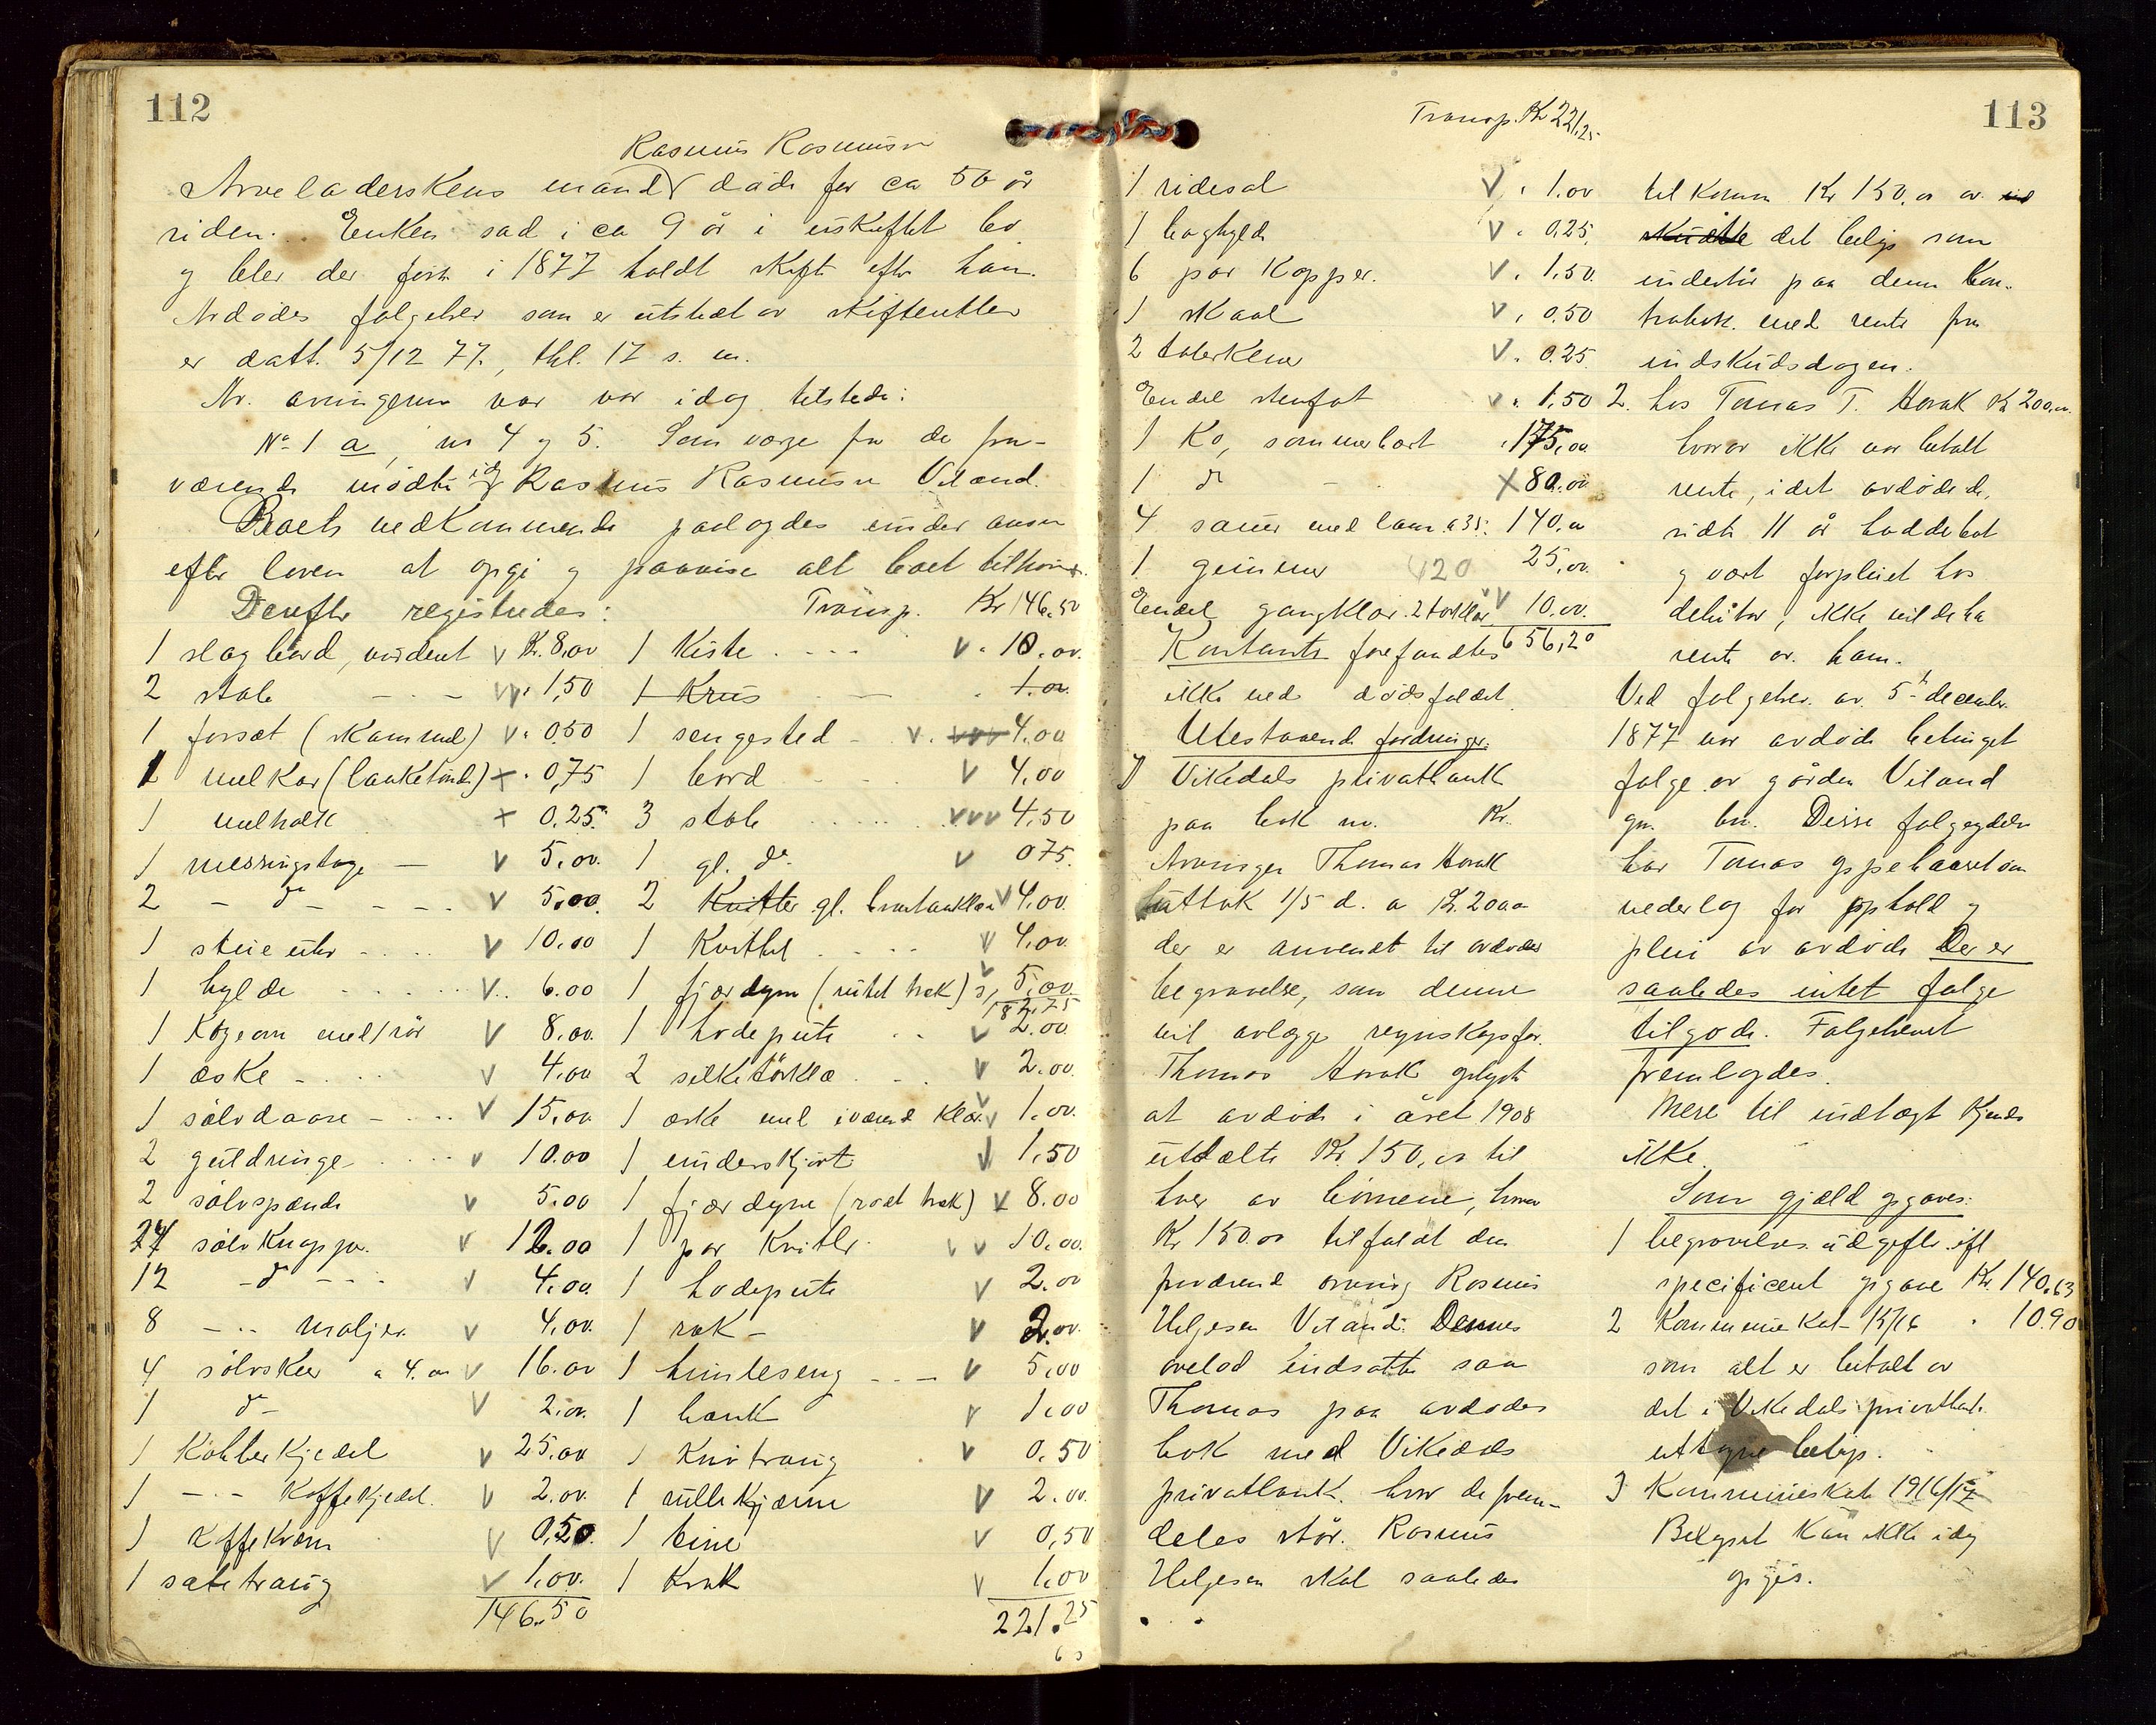 112
Rasmus Rasmusen
Arveladerskens mand døde for ca 50 år
siden. Enken sad i ca 9 år i uskiftet bo
og blev der først i 1877 holdt skifte efter ham.
Avdødes følgebrev som er utstedt av skifteretten
er datt. 5/12 77, thl. 17 s. m.
Av arvingerne var idag tilstede:
No 1 a, nr 4 og 5. Som verge for de fra-
værende mødte idag Rasmus Rasmusen Viland.
Boets vedkommende paalagdes under ansvar
efter loven at opgi og paavise alt boet tilhør.
Derefter registredes:
1 slagbord, vident v Kr. 8,00
2 stole - - - vv " 1,50
1 forsæt (skammel) v " 0.50
1 melkar (banketønde) x " 0,75
1 melholk x 0.25
1 messingstage - v 5.00
2 - do - - - v 5.00
1 stueuhr - . . . v 10.00
1 hylde . . . . . v 6.00
1 kogeovn med rør v 8.00
1 æske - . . . v 4.00
1 sølvdaase - . . . v 15.00
2 guldringe . . . v 10.00
2 sølvspænde v 5.00
24 sølvknapper v 12.00
12 - do - - - v 4.00
8 - .. maljer v 4.00
4 sølvskeer a 4.00 v 16.00
1 do - v 2.00
1 Kobberkjedel v 25.00
1 - .. - Kaffekjedel v 2.00
1 Kaffekvern v 0,50
1 saltetraug v 1.00
146.50
Transp. Kr 146.50
1 Kiste . . . . v " 10.00
1 Krus - 1.00
1 sengested - v. vvv 4.00
1 bord - - v 4.00
3 stole . . . . . vvv 4.50
1 gl. do. v 075
2 Kvitler gl. v 4.00
1 Kvittel . . . . v 4.00
1 fjærdyne (vitet trek) v 5.00
182.75
1 hodepute . . v 2.00
2 silketørklæ . . . v 2.00
1 æske med iværende klær v 1.00
1 underskjørt v 1.50
1 fjærdyne (rødt trek) v 8.00
1 par Kvitler v v 10.00
1 hodepute v 2.00
1 rok - v 2.00
1 himleseng - - - v 5.00
1 bænk v 1.00
1 Knivtraug v 0.50
1 rullekjærne v 2.00
1 tine v 0,50
1 Krak v 1.00
221.25
113
Transp. Kr 221,25
1 ridesal v " 1.00
1 baghyld v " 0.25
6 par Kopper. v " 1.50
1 skaal v " 0.50
2 talerkener v " 0.25
Endel stenfat v " 1.50
1 Ko, sommerbært " 175.00
1 do - x 80.00
4 sauer med lam a 35. 140.00
1 gimmer 420 25.00
Endel gangklær. 2 tørklær vv 10.00
656,20
Kontanter forefandtes
ikke ved dødsfaldet.
Utestaaende fordringer:
1 Vikedals privatbank
paa bok nr. Kr.
Arvingen Thomas Horak
uttok 1/5 d. a Kr. 200.00
der er anvendt til avdødes
begravelse, som denne
vil avlægge regnskap for.
Thomas Horak oplyste
at avdøde i året 1908
uttælte Kr. 150.00 til
hver av børnene, hvorav
Kr 150.00 tilfaldt den
fraværende arving Rasmus
Helgesen Viland. Dennes
arvelod indsatte saa
Thomas paa avdødes
bok med Vikedals
privatbank. hvor de frem-
deles står. Rasmus
Helgesen skal saaledes
tilkomm Kr 150.00 av ind
skudte det beløp som
inderstår paa denne kon-
trabok. med rente fra
indskudsdagen.
2. hos Tomas T. Horak Kr 200.00
hvorav ikke var betalt
rente, idet avdøde de,
sidste 11 år hadde bod
og vært forpleiet hos
debitor, ikke vilde ha
rente av ham.
Ved følgebrev av 5te december
1877 var avdøde betinget
følge av gården Viland
gn. bn. Disse følgeydelser
har Tomas oppebaaret som
vederlag for ophold og
pleie av avdøde. Der er
saaledes intet følge
tilgode. Følgebrevet
fremlagdes.
Mere til indtægt kjendes
ikke.
Som gjæld opgaves:
1 begravelses utgifter ifl
specificert opgave Kr. 140.63
2 Kommuneskat 15/16 " 10.90
som alt er betalt av
det i Vikedals privatbank
uttagne beløp.
3 Kommuneskat 1916/17
Beløpet kan ikke idag
opgis.